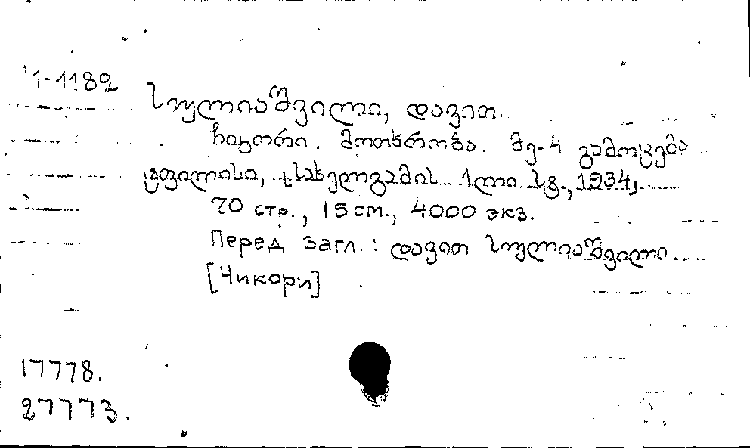 11-1182
სულიაშვილი, დავით.
ჩიკორი. მოთხრობა. მე-4 გამოცემა
ტფილისი, სახელგამის 1ლი სტ., 1934,
70 стр., 15 см., 4000 экз.
Перед загл.: დავით სულიაშვილი.
[Чикори]
17778.
27773.